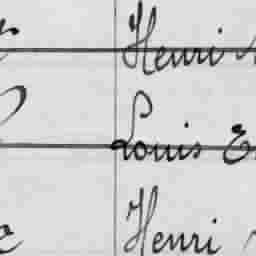 Henri
Louis
Henri